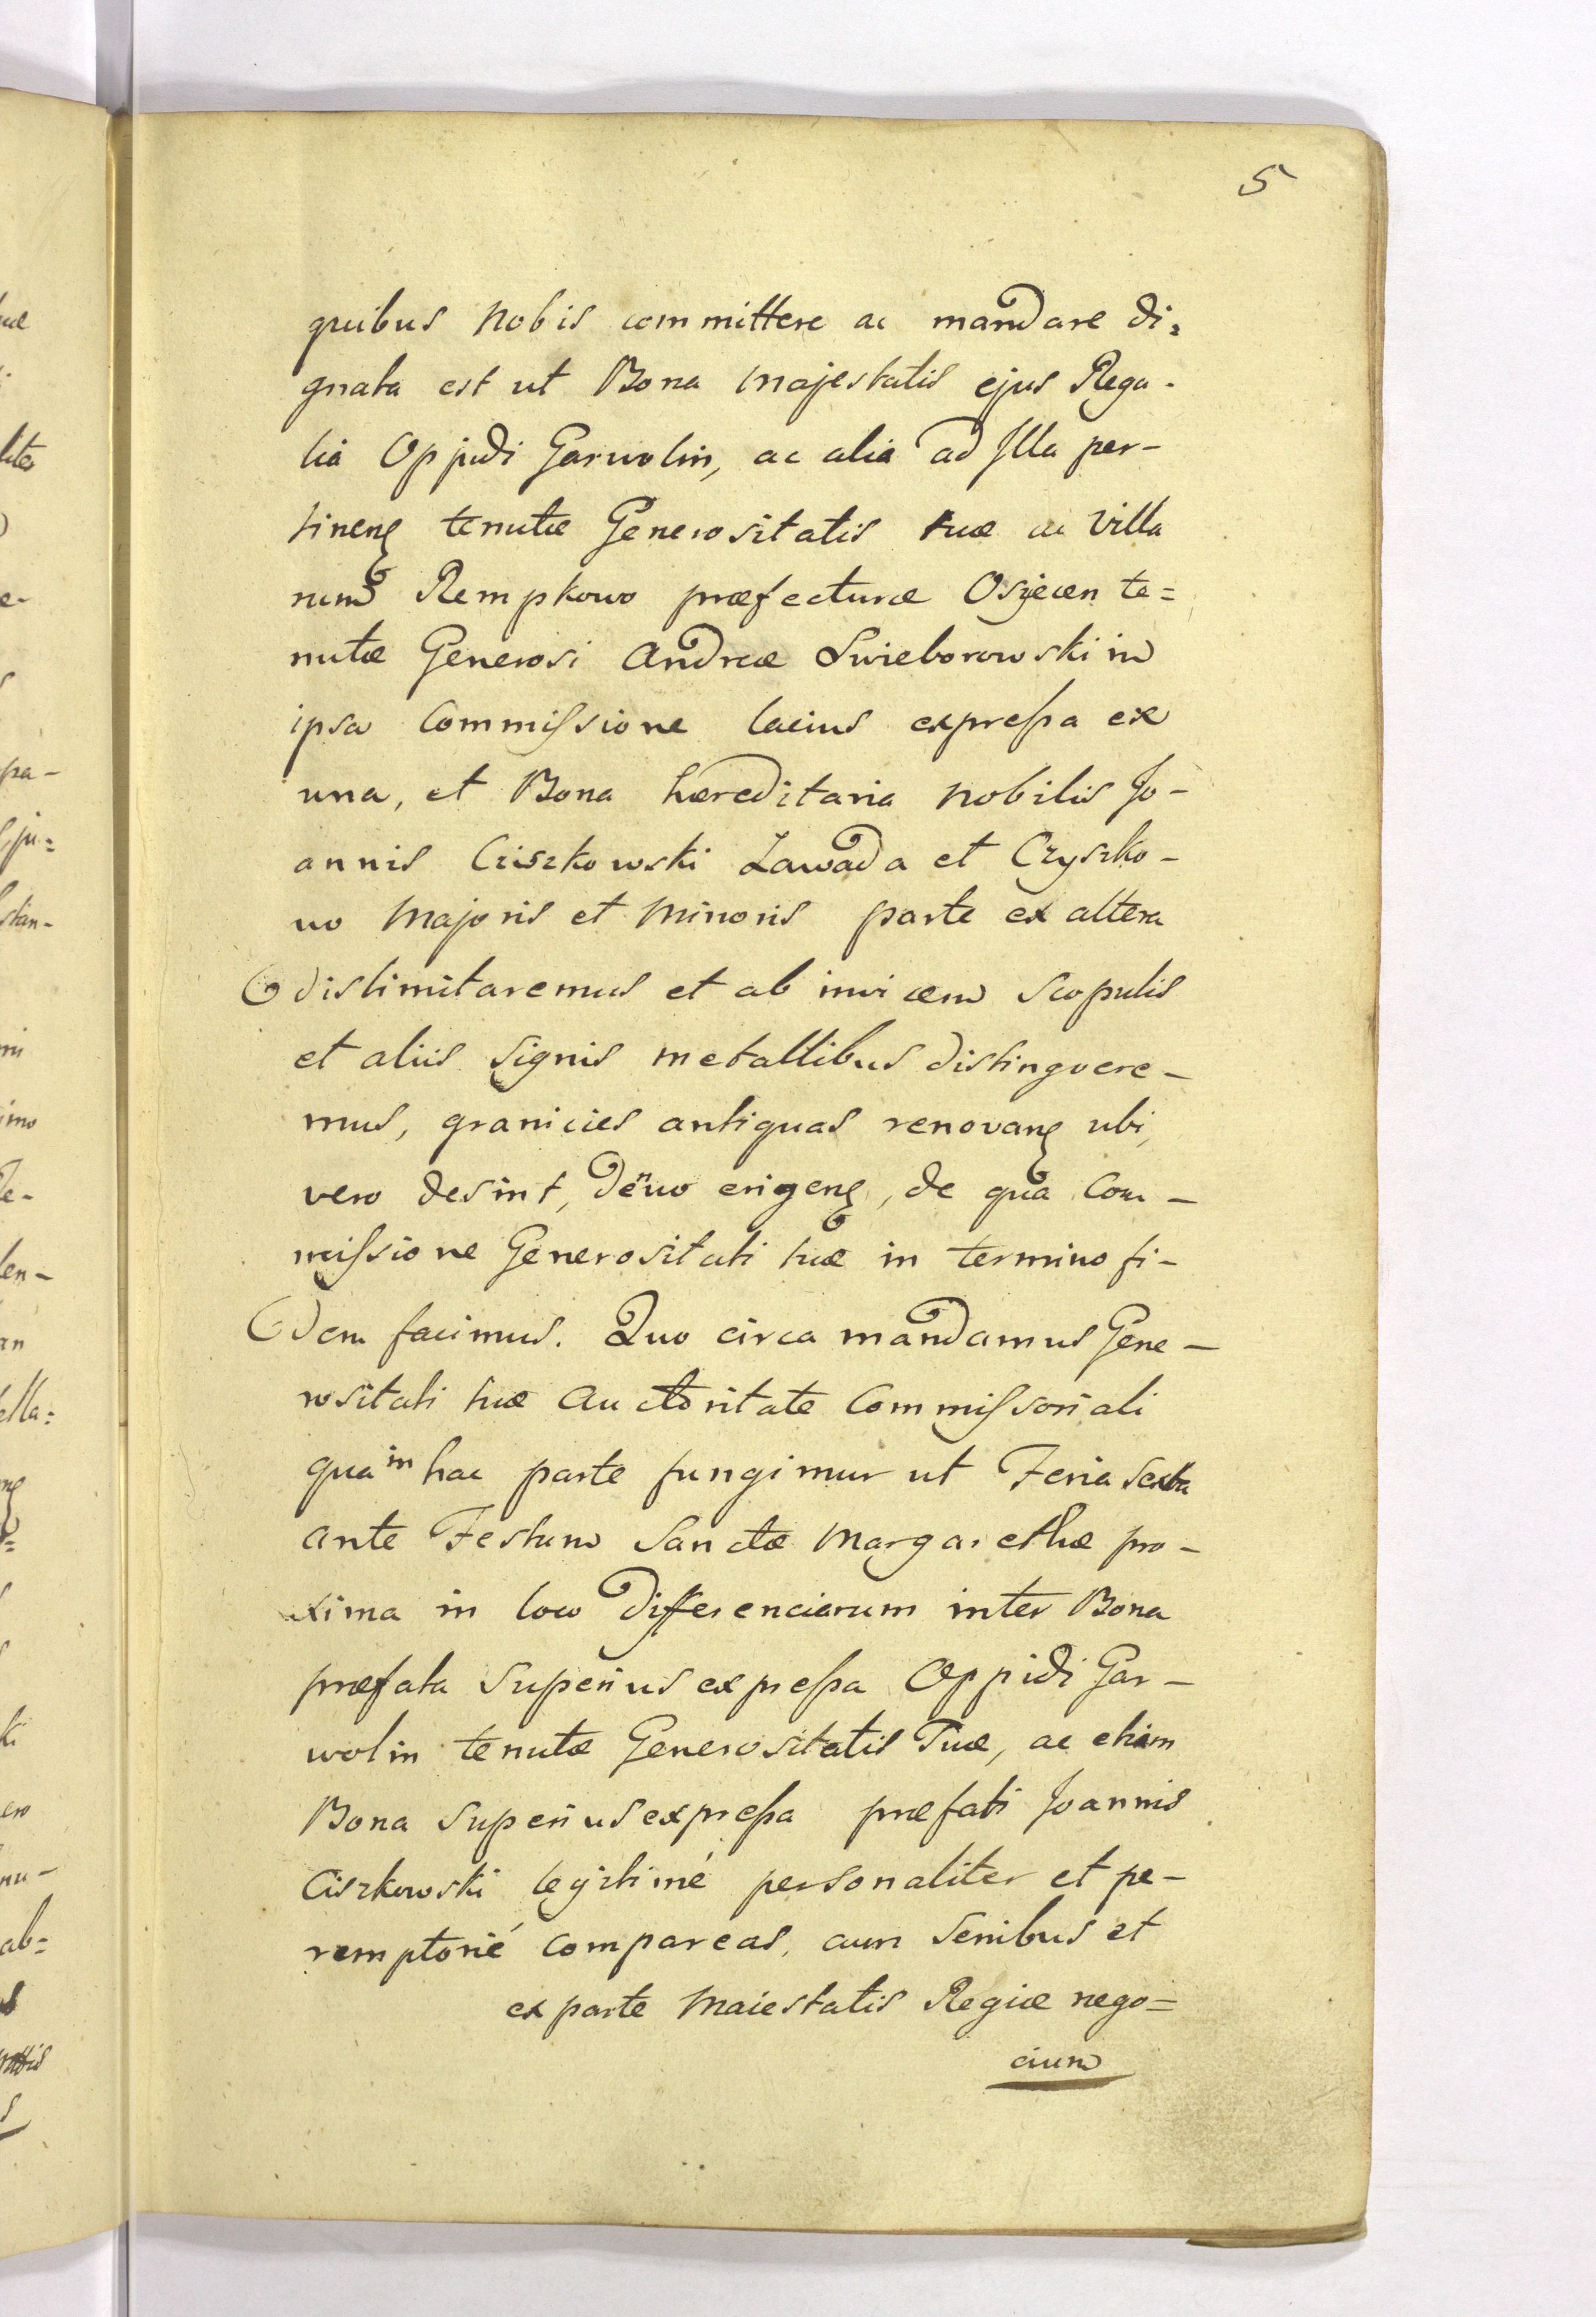 5
quibus Nobis committere ac mandare di=
gnata est ut Bona Majestatis ejus Rega-
lia Oppidi Garwolin, ac alia ad Illa per-
tineñ tenutæ Generositatis tuæ ac Villa
rum Rempkowo præfecturæ Osjecen te=
nutæ Generosi Andreæ Swieborowski in
ipsa Commissione lacius expressa ex
una, et Bona hæreditaria Nobilis Jo-
annis Cziszkowski Zawada et Czyszko-
wo Majoris et Minoris parte ex altera
dislimitaremus et ab invicem Scopulis
et aliis Signis metallibus distingvere-
mus, granicies antiquas renovanꝭ ubi
vero desint, denuo erigenꝭ, de qua Com-
missione Generositati tuæ in termino fi-
dem facimus. Quo circa mandamus Gene-
rositati tuæ Auctoritate Commissoriali
qua in hac parte fungimur ut Feria sexta
ante Festum Sanctæ Margarethæ pro-
xima in loco differenciarum inter Bona
præfata Superius expressa Oppidi Gar-
wolin tenutæ Generositatis Tuæ, ac etiam
Bona Superius expressa præfati Joannis
Ciszkowski legitimé personaliter et pe-
remptorié compareas, cum Senibus et
ex parte Maiestatis Regiæ nego=
cium